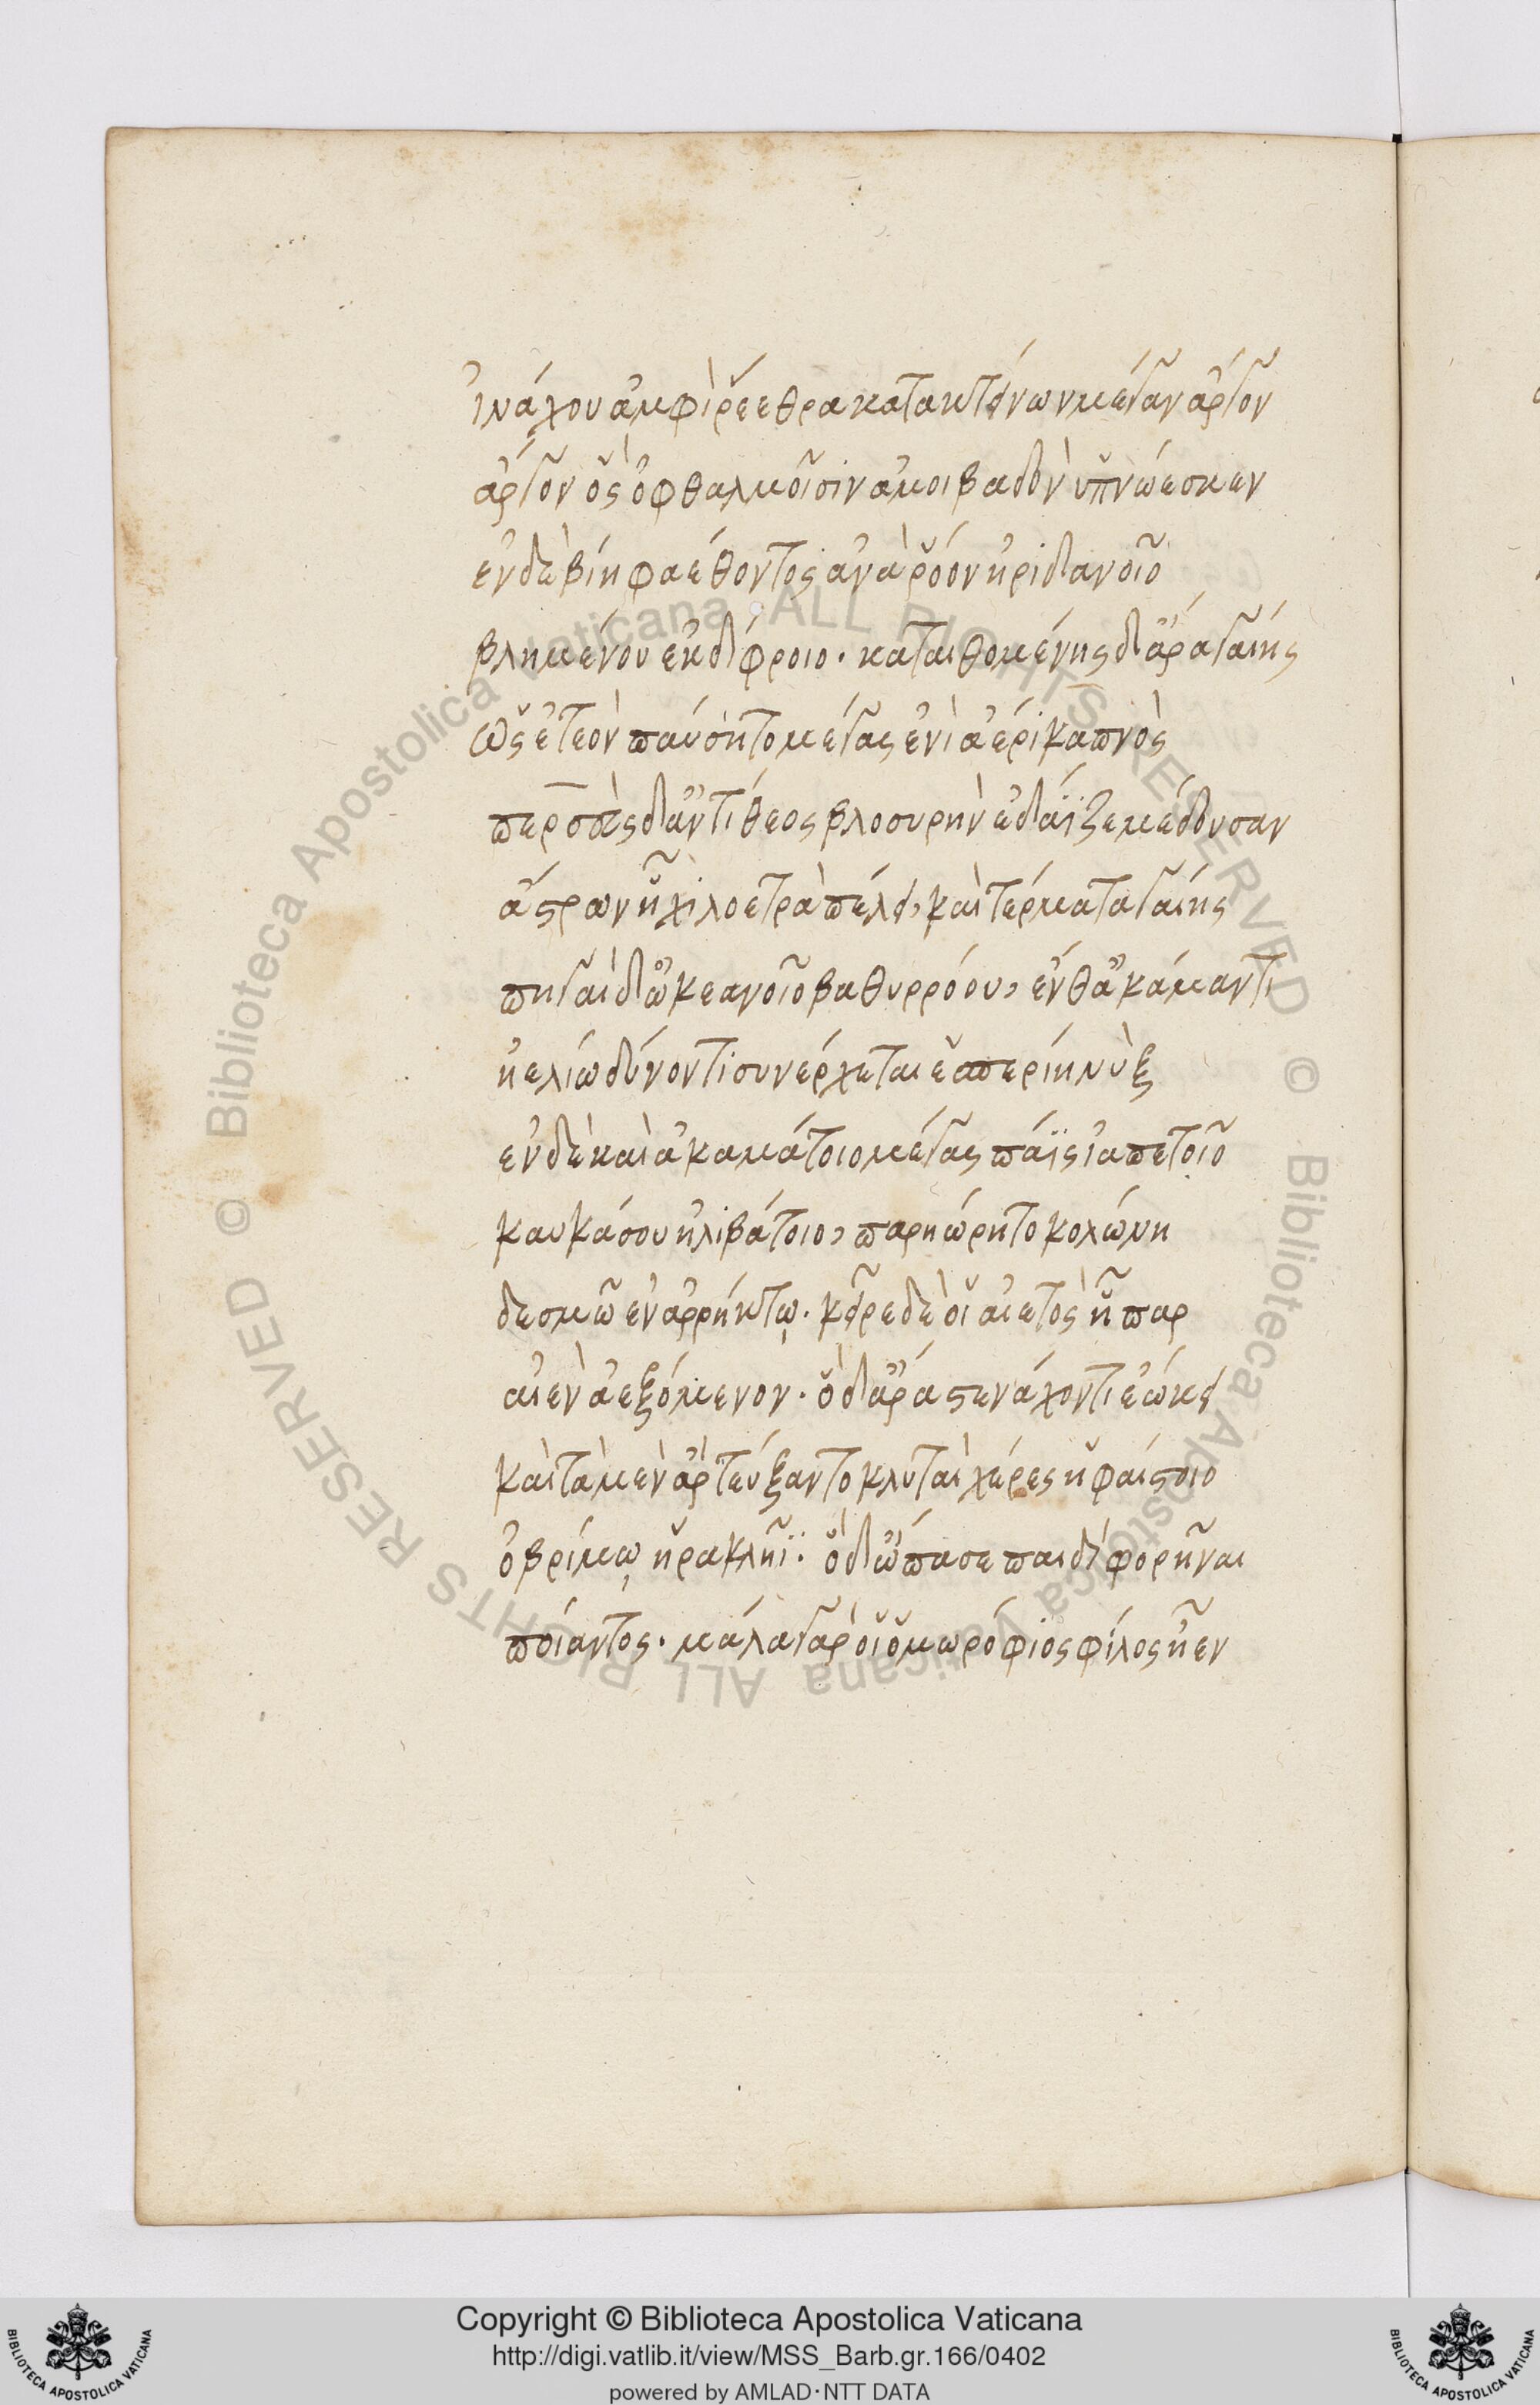 ἰνάχου ἀμφὶ ῥέεθρα κατακτείνων μέγαν ἄργον
ἄργον ὃς ὀφθαλμοῖσιν ἀμοιβαδὸν ὑπνώεσκεν
ἐν δὲ βίη φαέθοντος ἀνὰ ῥόον ἠριδανοῖο
βλημένου ἐκ δίφροιο· καταιθομένης δ᾽ ἄρα γαίης
ὡς ἐτεὸν πωτᾶτο μέγας ἐνὶ ἀέρι καπνὸς
περσεὺς δ᾽ ἀντίθεος βλοσυρὴν ἐδάϊζε μέδουσαν
ἄστρων ἧχι λοετρὰ πέλει, καὶ τέρματα γαίης
πηγαί δ᾽ ὠκεανοῖο βαθυρρόου, ἔνθ᾽ ἀκάμαντι
ἠελίω δύνοντι συνέρχεται ἑσπερίη νὺξ
ἐν δὲ καὶ ἀκαμάτοιο μέγας πάϊς ἰαπετοῖο
καυκάσου ἠλιβάτοιο, παρηώρητο κολώνη
δεσμῶ ἐν ἀρρήκτῳ· κεῖρε δέ οἱ αἰετὸς ἧπαρ
αἰὲν ἀεξόμενον· ὁ δ᾽ ἄρα στενάχοντι ἐώκει
καὶ τὰ μὲν ἂρ τεύξαντο κλυταὶ χέρες ἡφαίστοιο
ὀβρίμῳ ἡρακλῆϊ· ὁ δ᾽ ὤπασε παιδὶ φορῆναι
ποίαντος· μάλα γάρ οἱ ὁμωρόφιος φίλος ἦεν
Copyright © Biblioteca Apostolica Vaticana
http://digi.vatlib.it/view/MSS_Barb.gr.166/0402
powered by AMLAD·NTT DATA